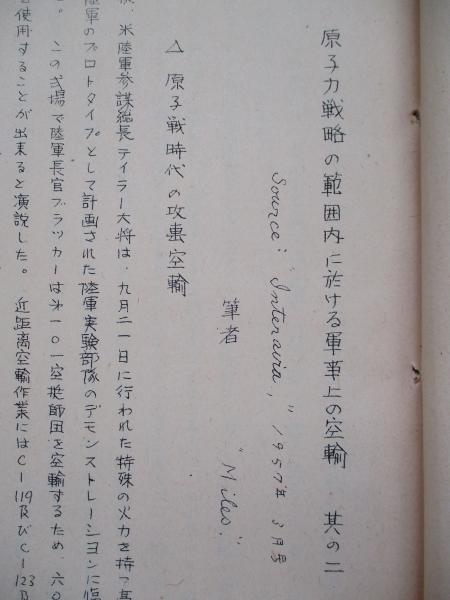 原子力戦略の範囲内に於ける軍事上の空輸 其の二
Source: "Interavia," 1957年 3月号
筆者 "Miles."
△ 原子戦時代の攻車空輸
米陸軍参謀総長テイラー大将は、九月二一日に行われた特殊の火力を持つ
陸軍のプロトタイプとして計画された陸軍実験部隊のデモンストレーションに
。この式場で陸軍長官ブラッカーは才一〇一空挺師団を空輸するため、六〇
使用することが出来ると演説した。 近距離空輸作業にはC-119及びC-123